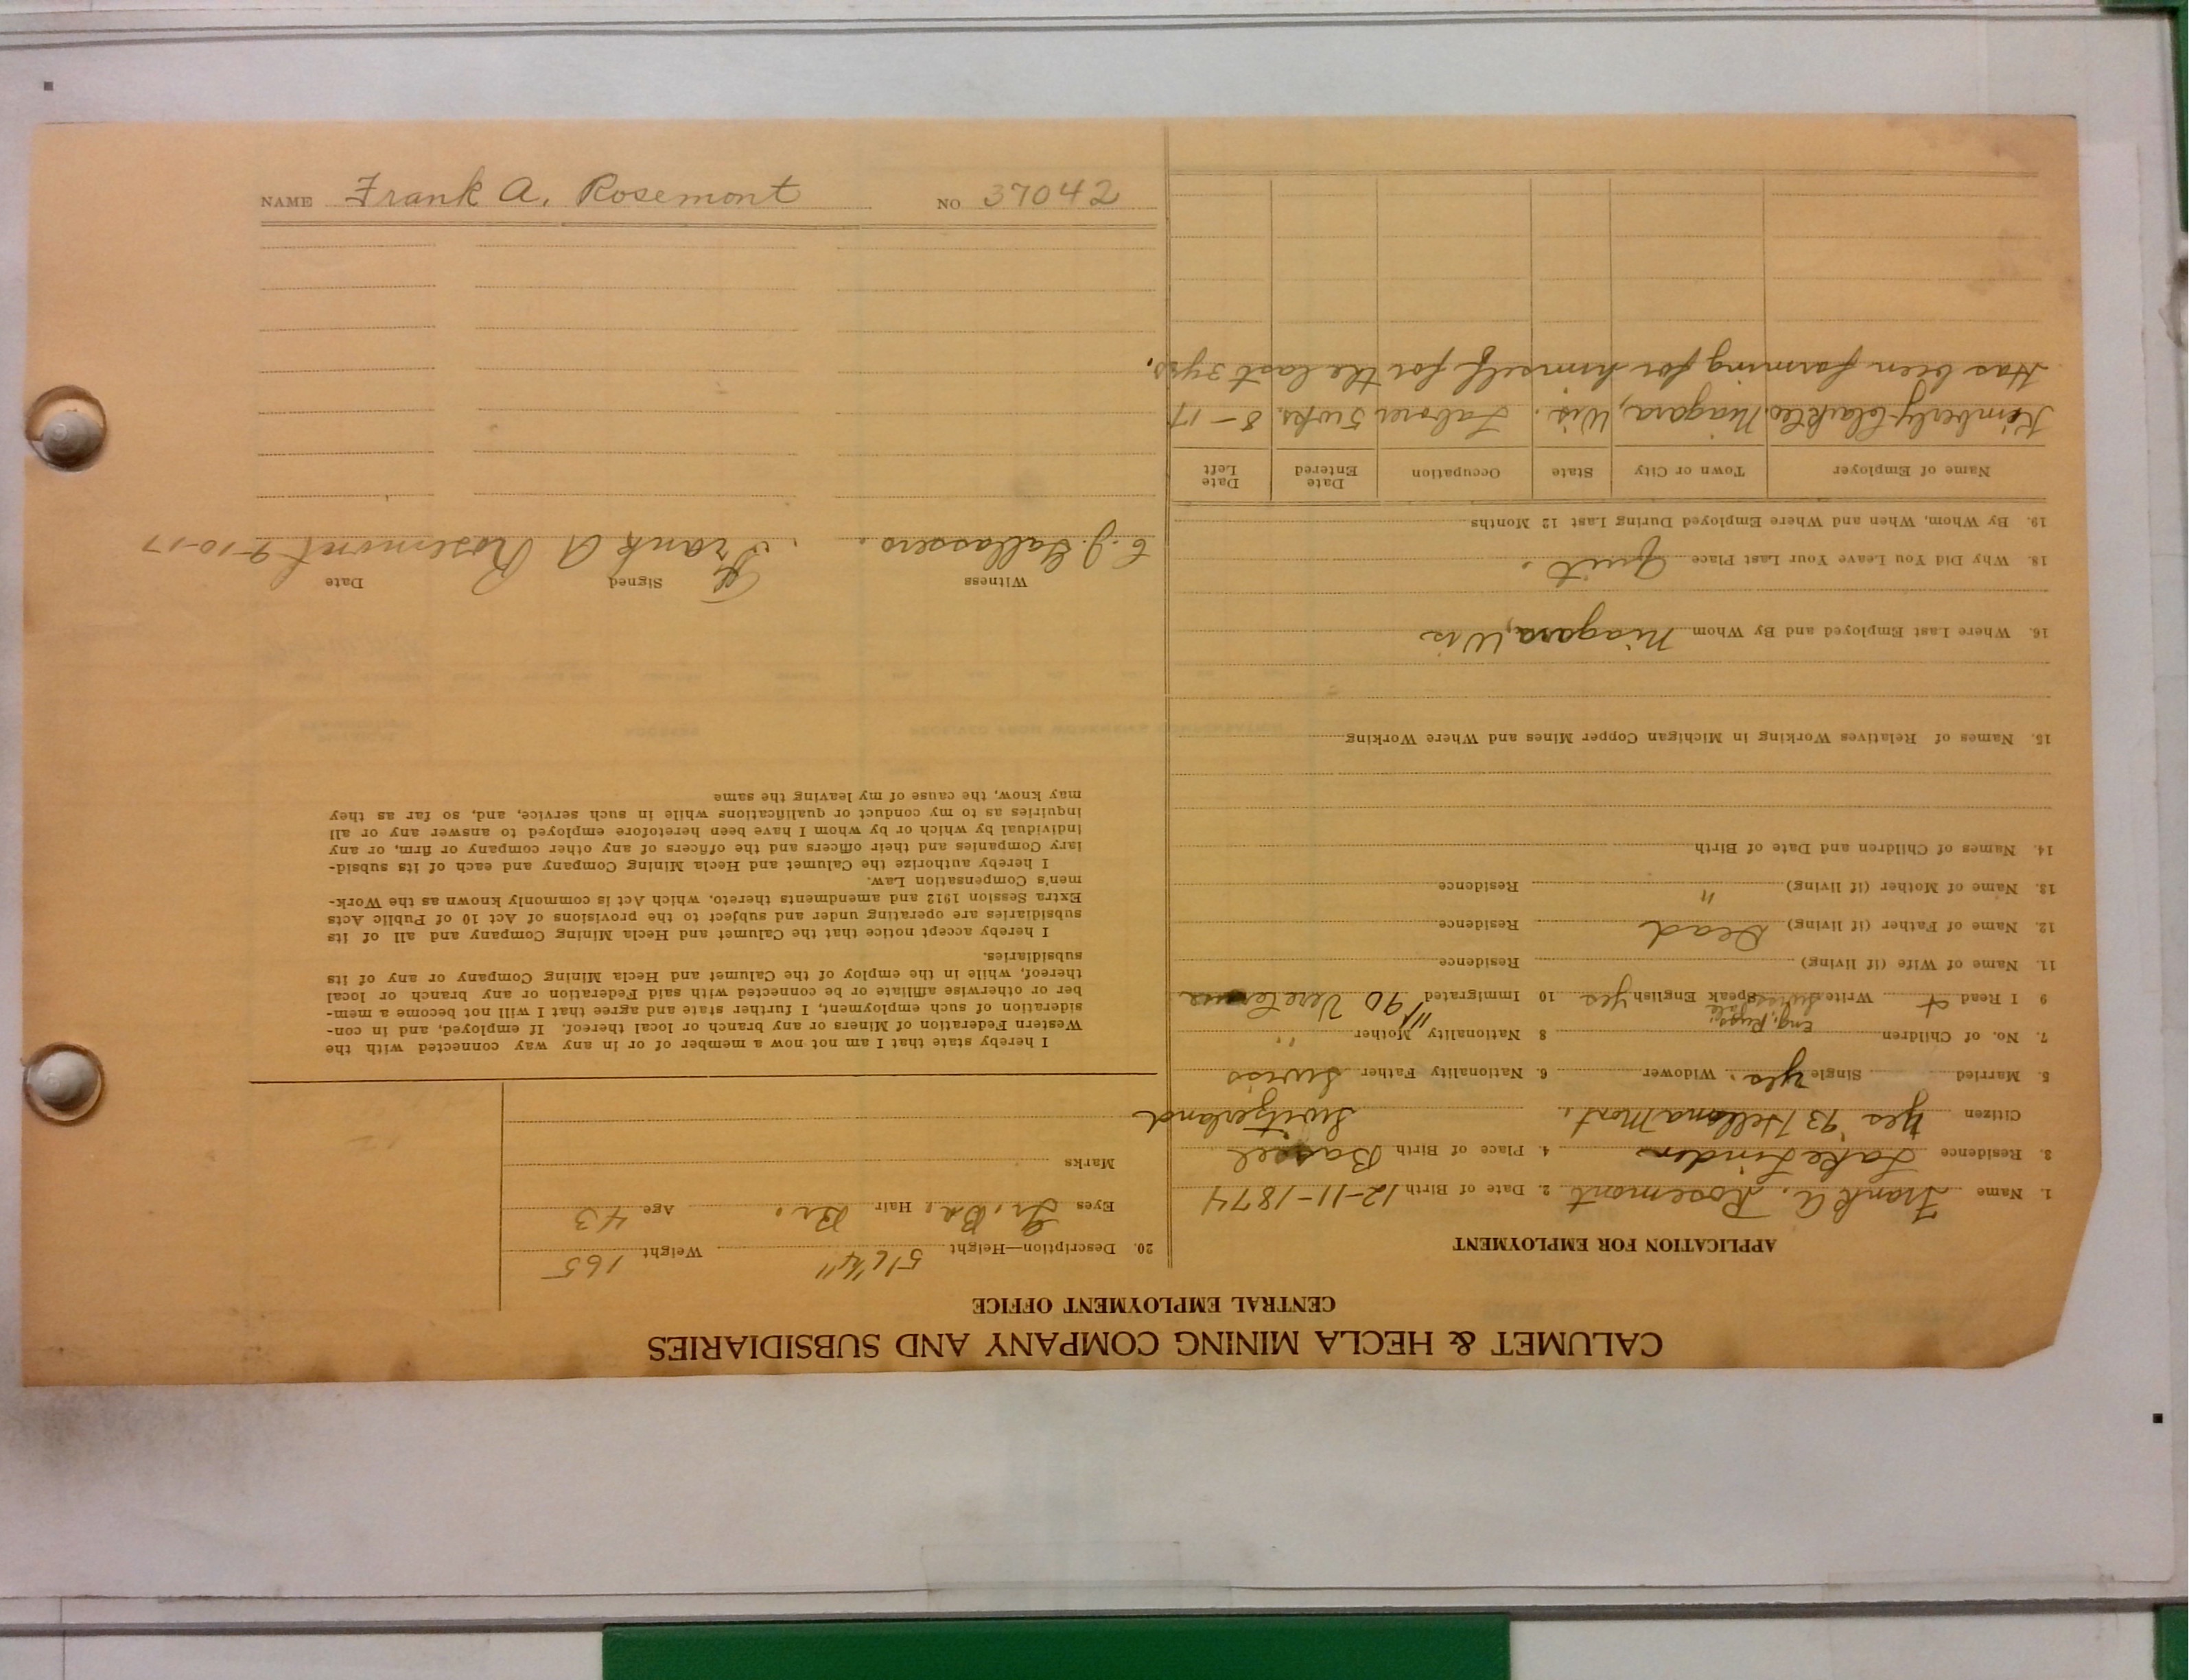 CALUMET & HECLA MINING COMPANY AND SUBSIDIARIES
CENTRAL EMPLOYMENT OFFICE
APPLICATION FOR EMPLOYMENT
1. Name Frank A. Rosemont 2. Date of Birth 12-11-1874
3. Residence Lake Linden 4. Place of Birth Bassel
Citizen Yes '93 Mont. Switzerland
5. Married Single Yes. Widower 6. Nationality Father Swiss
7. No. of Children 8 Nationality Mother "
Eng.
9 I Read & Write Swiss Speak English Yes 10 Immigrated '90
11. Name of Wife (if living) Residence
12. Name of Father (if living) Dead Residence
13. Name of Mother (if living) " Residence
14. Names of Children and Date of Birth
15. Names of Relatives Working in Michigan Copper Mines and Where Working
16. Where Last Employed and By Whom Niagara, Wis
18. Why Did You Leave Your Last Place Quit.
19. By Whom, When and Where Employed During Last 12 Months
Name of Employer Town or City State Occupation Date Entered Date Left
Kimberly Clark Co. Niagara, Wis. Laborer 5 wks. 8-17
Has been farming for himself for the last 3 yrs.
20. Description—Height 5'6¼" Weight 165
Eyes Hair Br. Age 43
Marks
I hereby state that I am not now a member of or in any way connected with the
Western Federation of Miners or any branch or local thereof. If employed, and in con-
sideration of such employment, I further state and agree that I will not become a mem-
ber or otherwise affiliate or be connected with said Federation or any branch or local
thereof, while in the employ of the Calumet and Hecla Mining Company or any of its
subsidiaries.
I hereby accept notice that the Calumet and Hecla Mining Company and all of its
subsidiaries are operating under and subject to the provisions of Act 10 of Public Acts
Extra Session 1912 and amendments thereto, which Act is commonly known as the Work-
men's Compensation Law.
I hereby authorize the Calumet and Hecla Mining Company and each of its subsid-
iary Companies and their officers and the officers of any other company or firm, or any
individual by which or by whom I have been heretofore employed to answer any or all
inquiries as to my conduct or qualifications while in such service, and, so far as they
may know, the cause of my leaving the same
Witness Signed Date
Frank A Rosemont 9-10-17
NAME Frank A. Rosemont NO 37042